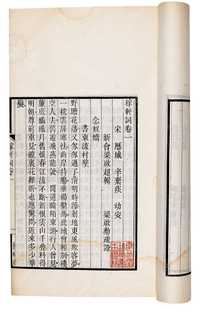 稼軒詞卷一
宋 歷城 辛棄疾 幼安
新會梁啟超輯
梁啟勳疏證
念奴嬌
書東流村壁
野塘花落又匆匆過了清明時節剗地東風欺客夢
一枕雲屏寒怯曲岸持觴垂楊繫馬此地曾輕別樓
空人去舊遊飛燕能說 聞道綺陌東頭行人曾見
簾底纖纖月舊恨春江流不斷新恨雲山千疊料得
明朝尊前重見鏡裏花難折也應驚問近來多少華
髮